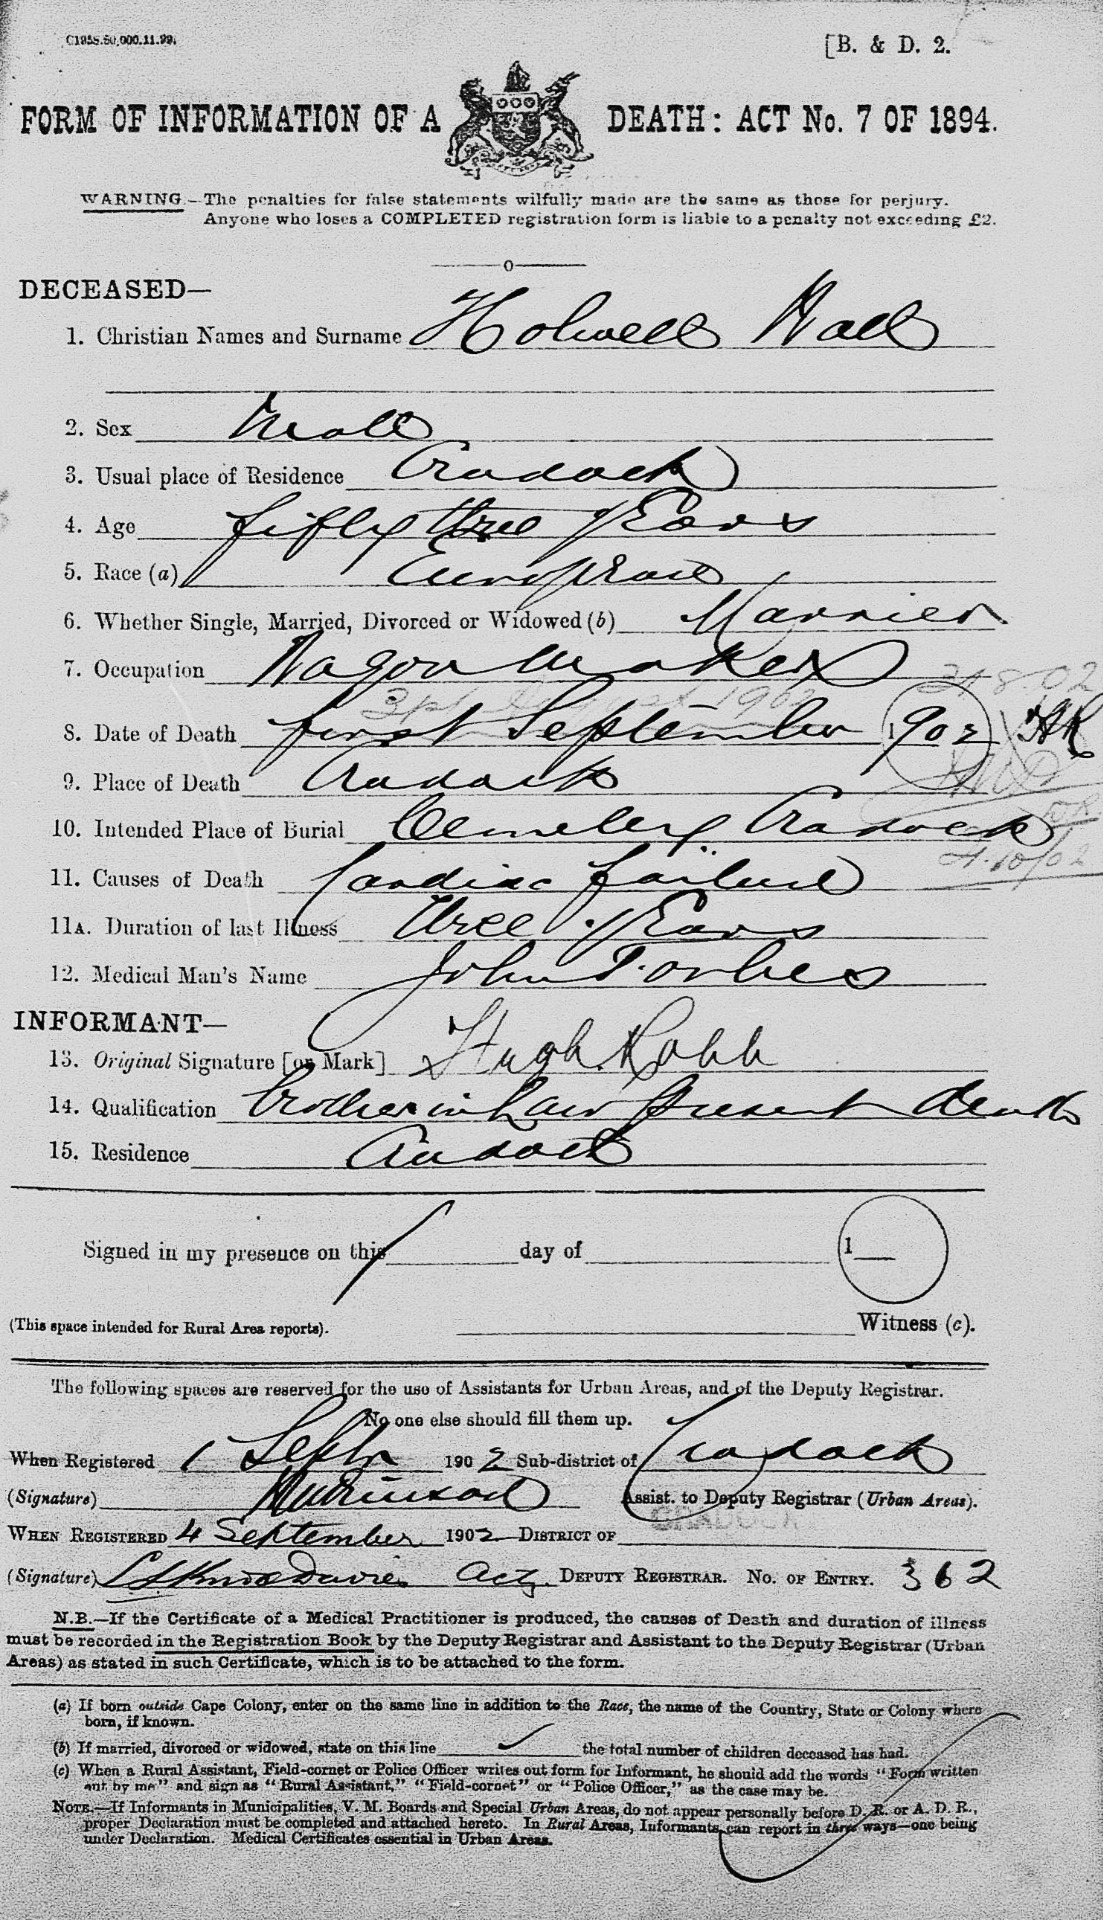 C1955.50,000.11.99.
[B. & D. 2.
FORM OF INFORMATION OF A DEATH: ACT No. 7 OF 1894.
WARNING.—The penalties for false statements wilfully made are the same as those for perjury.
Anyone who loses a COMPLETED registration form is liable to a penalty not exceeding £2.
DECEASED—
1. Christian Names and Surname Holwell Wall
2. Sex Male
3. Usual place of Residence Cradock
4. Age fifty three years
5. Race (a) European
6. Whether Single, Married, Divorced or Widowed (b) Married
7. Occupation Wagon maker
31.8.02
31st August 1902
8. Date of Death first September 1902
9. Place of Death Cradock
10. Intended Place of Burial Cemetery Cradock
4.10/02
11. Causes of Death Cardiac failure
11A. Duration of last Illness three years
12. Medical Man's Name John Forbes
INFORMANT—
13. Original Signature [or Mark] Hugh Robb
14. Qualification brother in Law present death
15. Residence Cradock
Signed in my presence on this day of 1
(This space intended for Rural Area reports). Witness (c).
The following spaces are reserved for the use of Assistants for Urban Areas, and of the Deputy Registrar.
No one else should fill them up.
When Registered 1 Septr 1902 Sub-district of Cradock
(Signature) Assist. to Deputy Registrar (Urban Areas).
CRADOCK
WHEN REGISTERED 4 September 1902 DISTRICT OF
(Signature) Davies Actg. DEPUTY REGISTRAR. NO. OF ENTRY. 362
N.B.—If the Certificate of a Medical Practitioner is produced, the causes of Death and duration of illness
must be recorded in the Registration Book by the Deputy Registrar and Assistant to the Deputy Registrar (Urban
Areas) as stated in such Certificate, which is to be attached to the form.
(a) If born outside Cape Colony, enter on the same line in addition to the Race, the name of the Country, State or Colony where
born, if known.
(b) If married, divorced or widowed, state on this line the total number of children deceased has had.
(c) When a Rural Assistant, Field-cornet or Police Officer writes out form for Informant, he should add the words "Form written
out by me" and sign as "Rural Assistant," "Field-cornet" or "Police Officer," as the case may be.
NOTE.—If Informants in Municipalities, V. M. Boards and Special Urban Areas, do not appear personally before D. R. or A. D. R.,
proper Declaration must be completed and attached hereto. In Rural Areas, Informants can report in three ways—one being
under Declaration. Medical Certificates essential in Urban Areas.